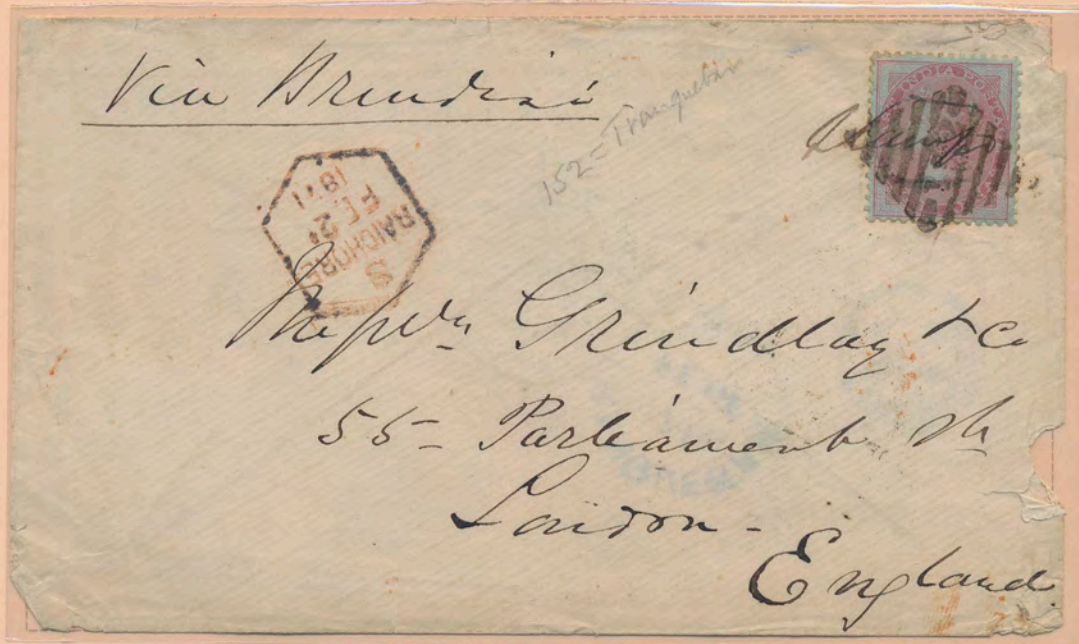 Via Brindisi
152 = Tranquebar
INDIA POSTAGE
RAICHORE
FE 2
1871
Messrs Grindlay & Co
55 - Parliament St
London -
England